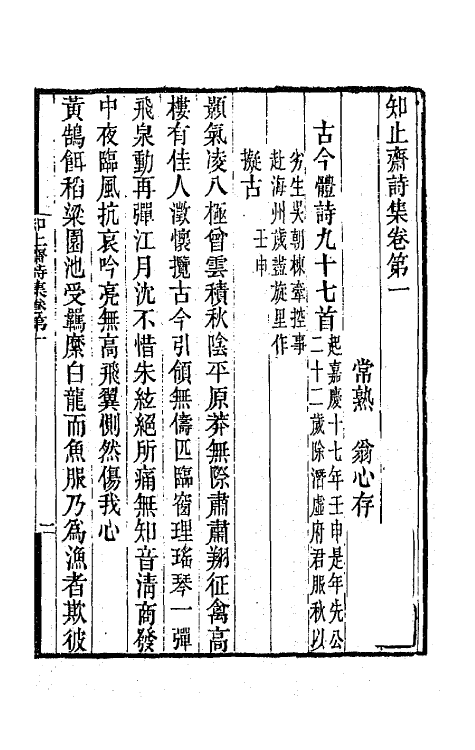 知止齋詩集卷第一
常熟 翁心存
古今體詩九十七首起嘉慶十七年壬申是年先公
二十二歲除潛虛府君服秋以
劣生吳朝棟牽控事
赴海州歲盡旋里作
壬申
擬古
顥氣凌八極曾雲積秋陰平原莽無際肅肅翔征禽高
樓有佳人澂懷攬古今引領無儔匹臨窗理瑤琴一彈
飛泉動再彈江月沈不惜朱絃絕所痛無知音清商發
中夜臨風抗哀吟亮無高飛翼側然傷我心
黃鵠餌稻粱園池受羈縻白龍而魚服乃為漁者欺彼
知止齋詩集卷第一
一